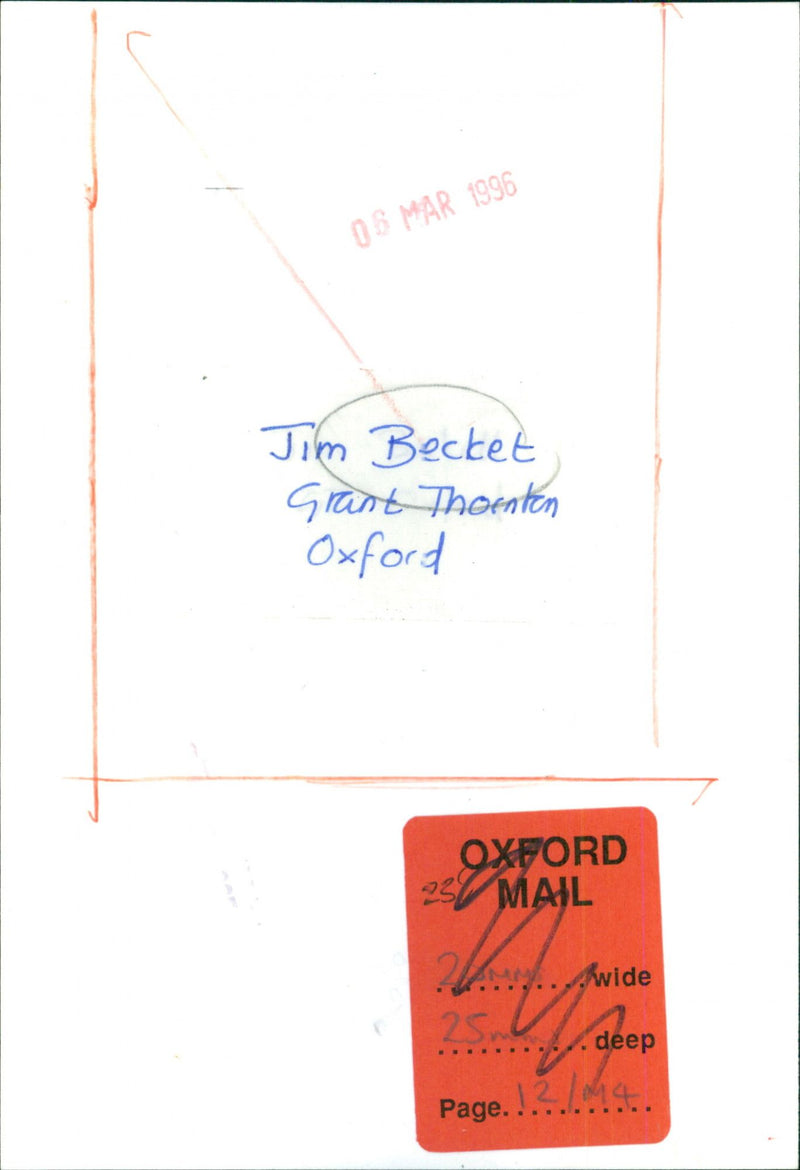 06 MAR 1996
Jim Becket
Grant Thornton
Oxford
OXFORD
MAIL
wide
25mm deep
Page 12/M4